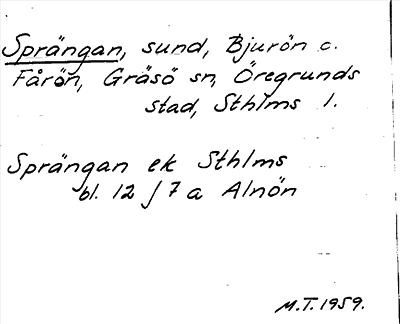 Sprängan, sund, Bjurön o.
Fårön, Gräsö sn, Öregrunds
stad, Sthlms l.
Sprängan ek Sthlms
bl. 12 f 7 a Alnön
M.T. 1959.